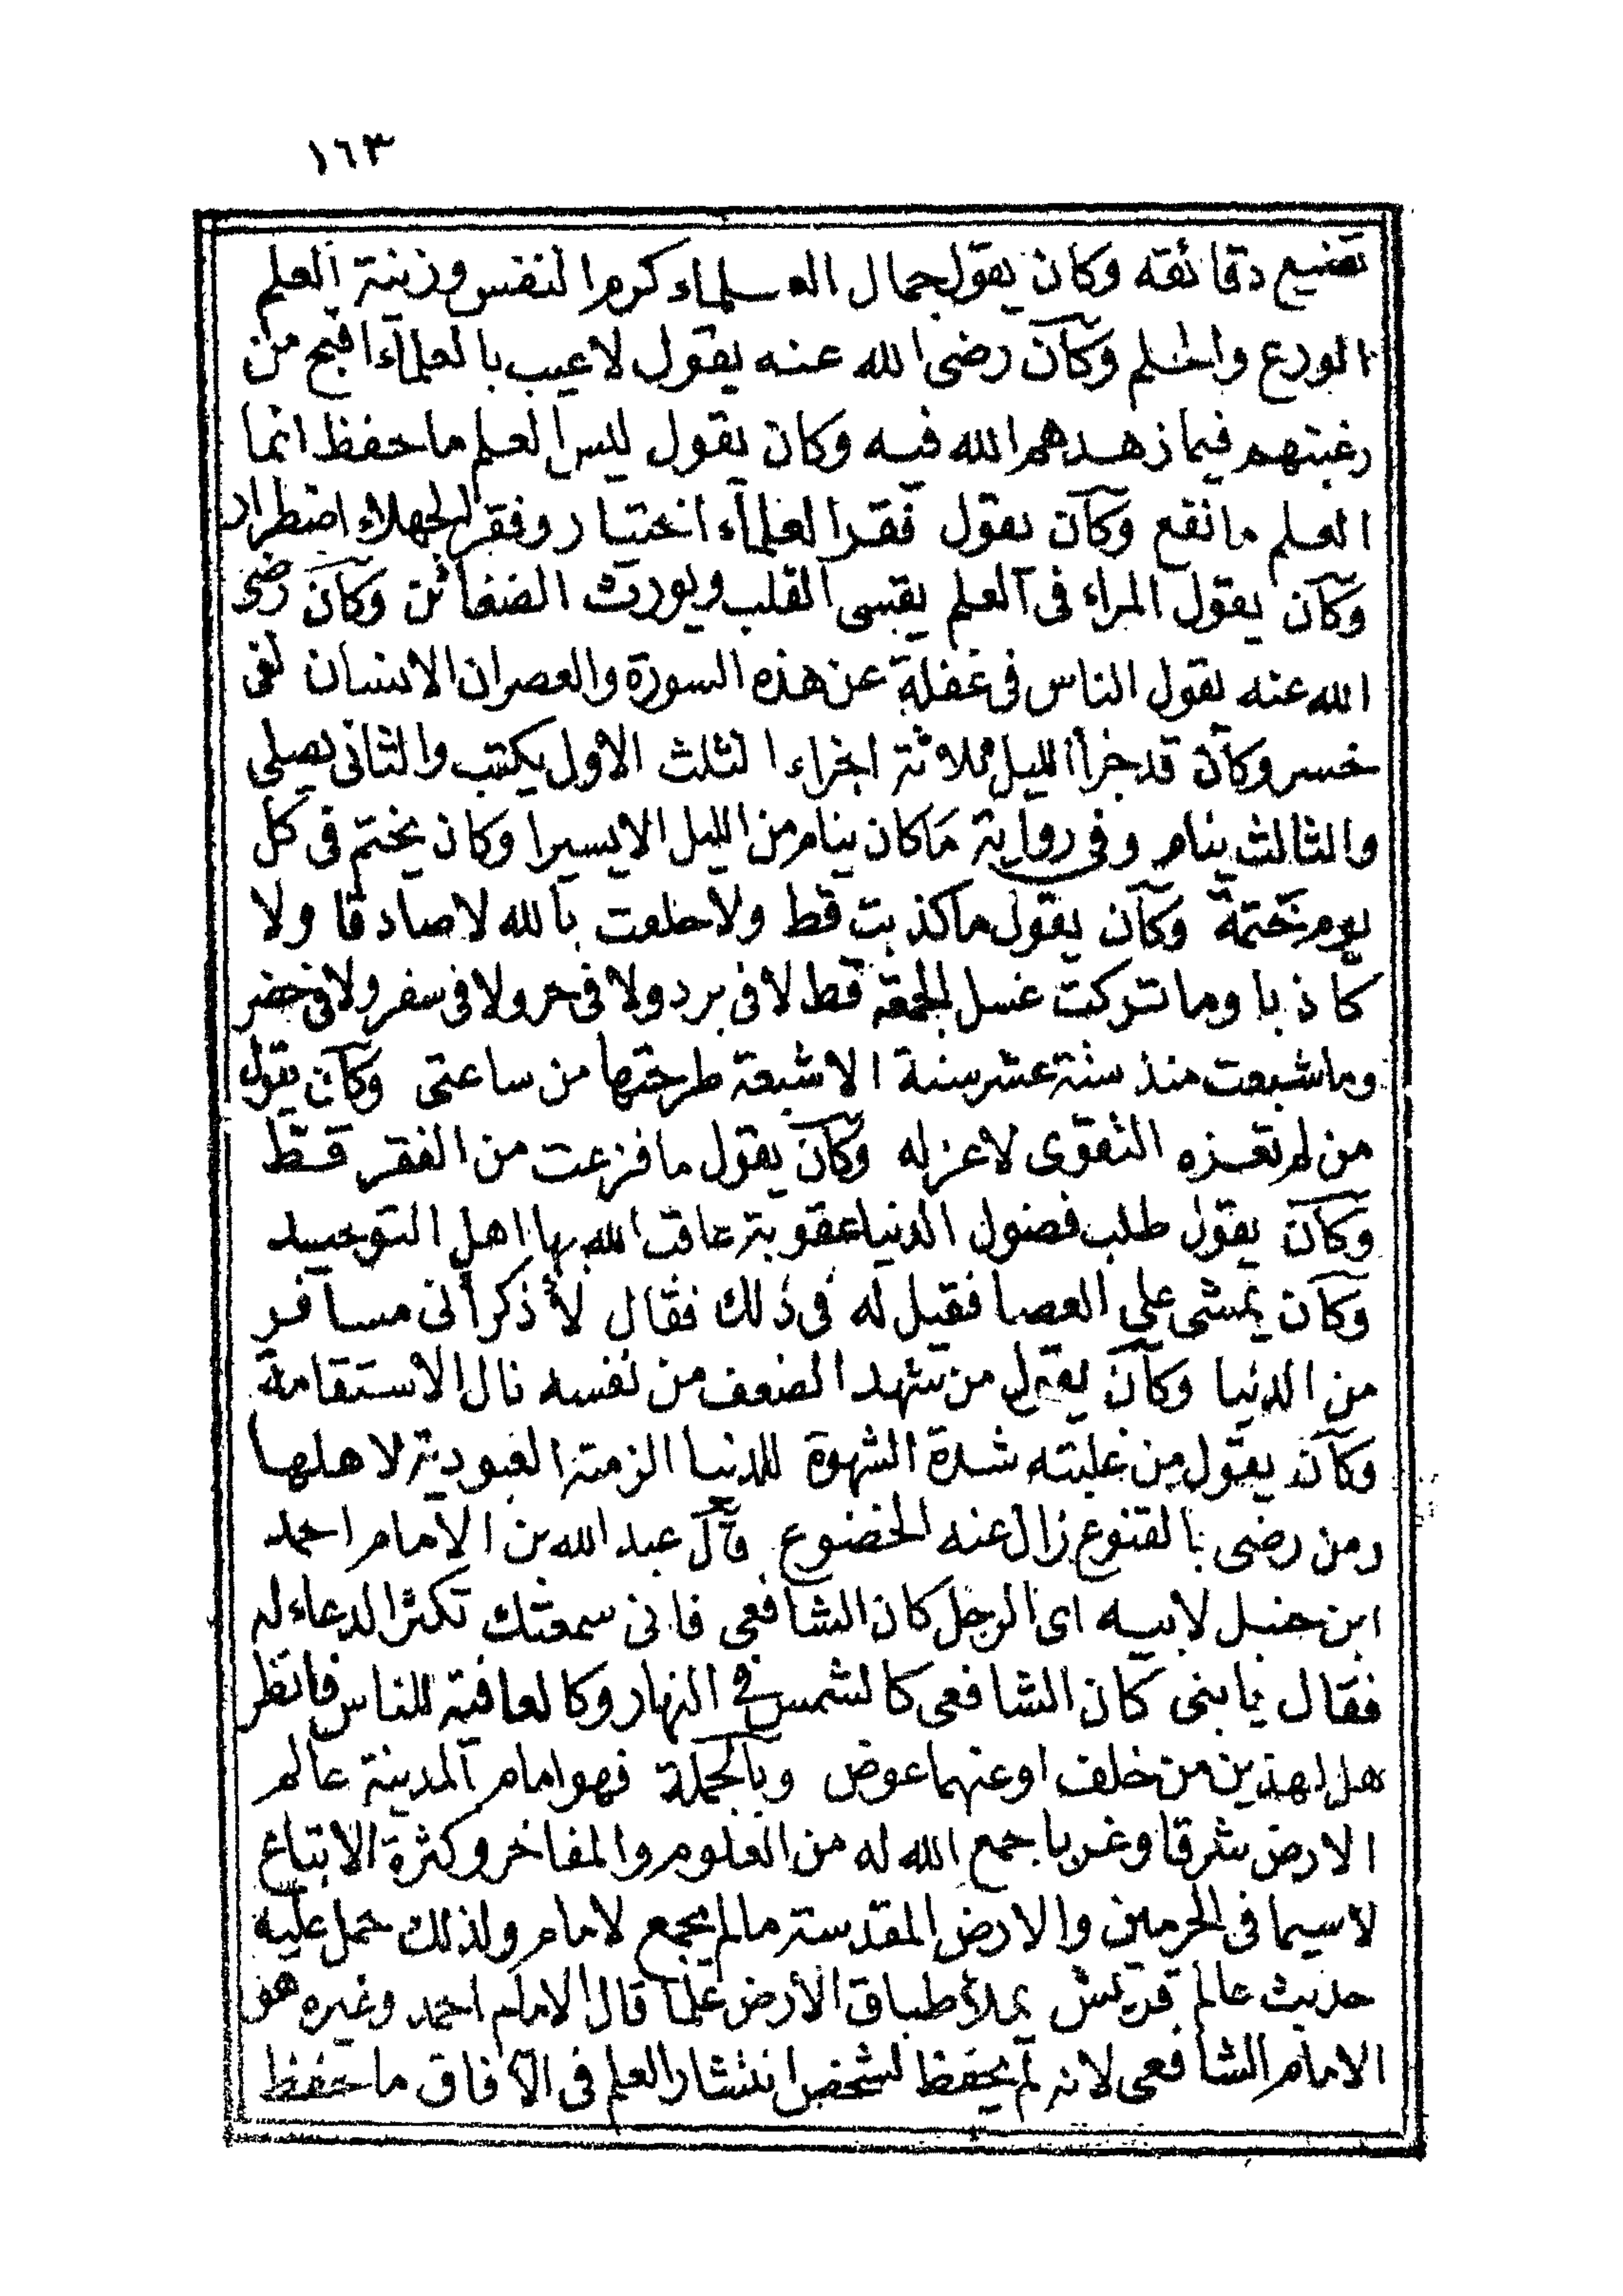 ١٦٣
تضيع دقائقه وكان يقول جمال العلماء كرم النفس وزينة العلم
الورع والحلم وكان رضى الله عنه يقول لاعيب بالعلماء اقبح من
رغبتهم فيما زهدهم الله فيه وكان يقول ليس العلم ما حفظ انما
العلم ما نفع وكان يقول فقر العلماء اختيار وفقر الجهلاء اضطرار
وكان يقول المراء فى العلم يقسى القلب ويورث الضغائن وكان رضى
الله عنه يقول الناس فى غفلة عن هذه السورة والعصر ان الانسان لفى
خسر وكان قد جزأ الليل ثلاثة اجزاء الثلث الاول يكتب والثانى يصلى
والثالث ينام وفى رواية ما كان ينام من الليل الا يسيرا وكان يختم فى كل
يوم ختمة وكان يقول ما كذبت قط ولا حلفت بالله لا صادقا ولا
كاذبا وما تركت غسل الجمعة قط لا فى برد ولا فى حر ولا فى سفر ولا فى حضر
وما شبعت منذ ستة عشر سنة الا شبعة طرحتها من ساعتى وكان يقول
من لم تعزه التقوى لا عز له وكان يقول ما فزعت من الفقر قط
وكان يقول طلب فضول الدنيا عقوبة عاقب الله بها اهل التوحيد
وكان يمشى على العصا فقيل له فى ذلك فقال لأذكر أنى مسافر
من الدنيا وكان يقول من شهد الضعف من نفسه نال الاستقامة
وكان يقول من غلبته شدة الشهوة للدنيا الزمته العبودية لاهلها
ومن رضى بالقنوع زال عنه الخضوع قال عبد الله بن الامام احمد
ابن حنبل لابيه اى الرجل كان الشافعى فانى سمعتك تكثر الدعاء له
فقال يا بنى كان الشافعى كالشمس فى النهار وكالعافية للناس فانظر
هل لهذين من خلف او عنهما عوض وبالجملة فهو امام المدينة عالم
الارض شرقا وغربا جمع الله له من العلوم والمفاخر وكثرة الاتباع
لا سيما فى الحرمين والارض المقدسة ما لم يجمع لامام ولذلك حمل عليه
حديث عالم قريش يملأ طباق الأرض علما قال الامام احمد وغيره هو
الامام الشافعى لانه لم يحفظ لشخص انتشار العلم فى الآفاق ما حفظ